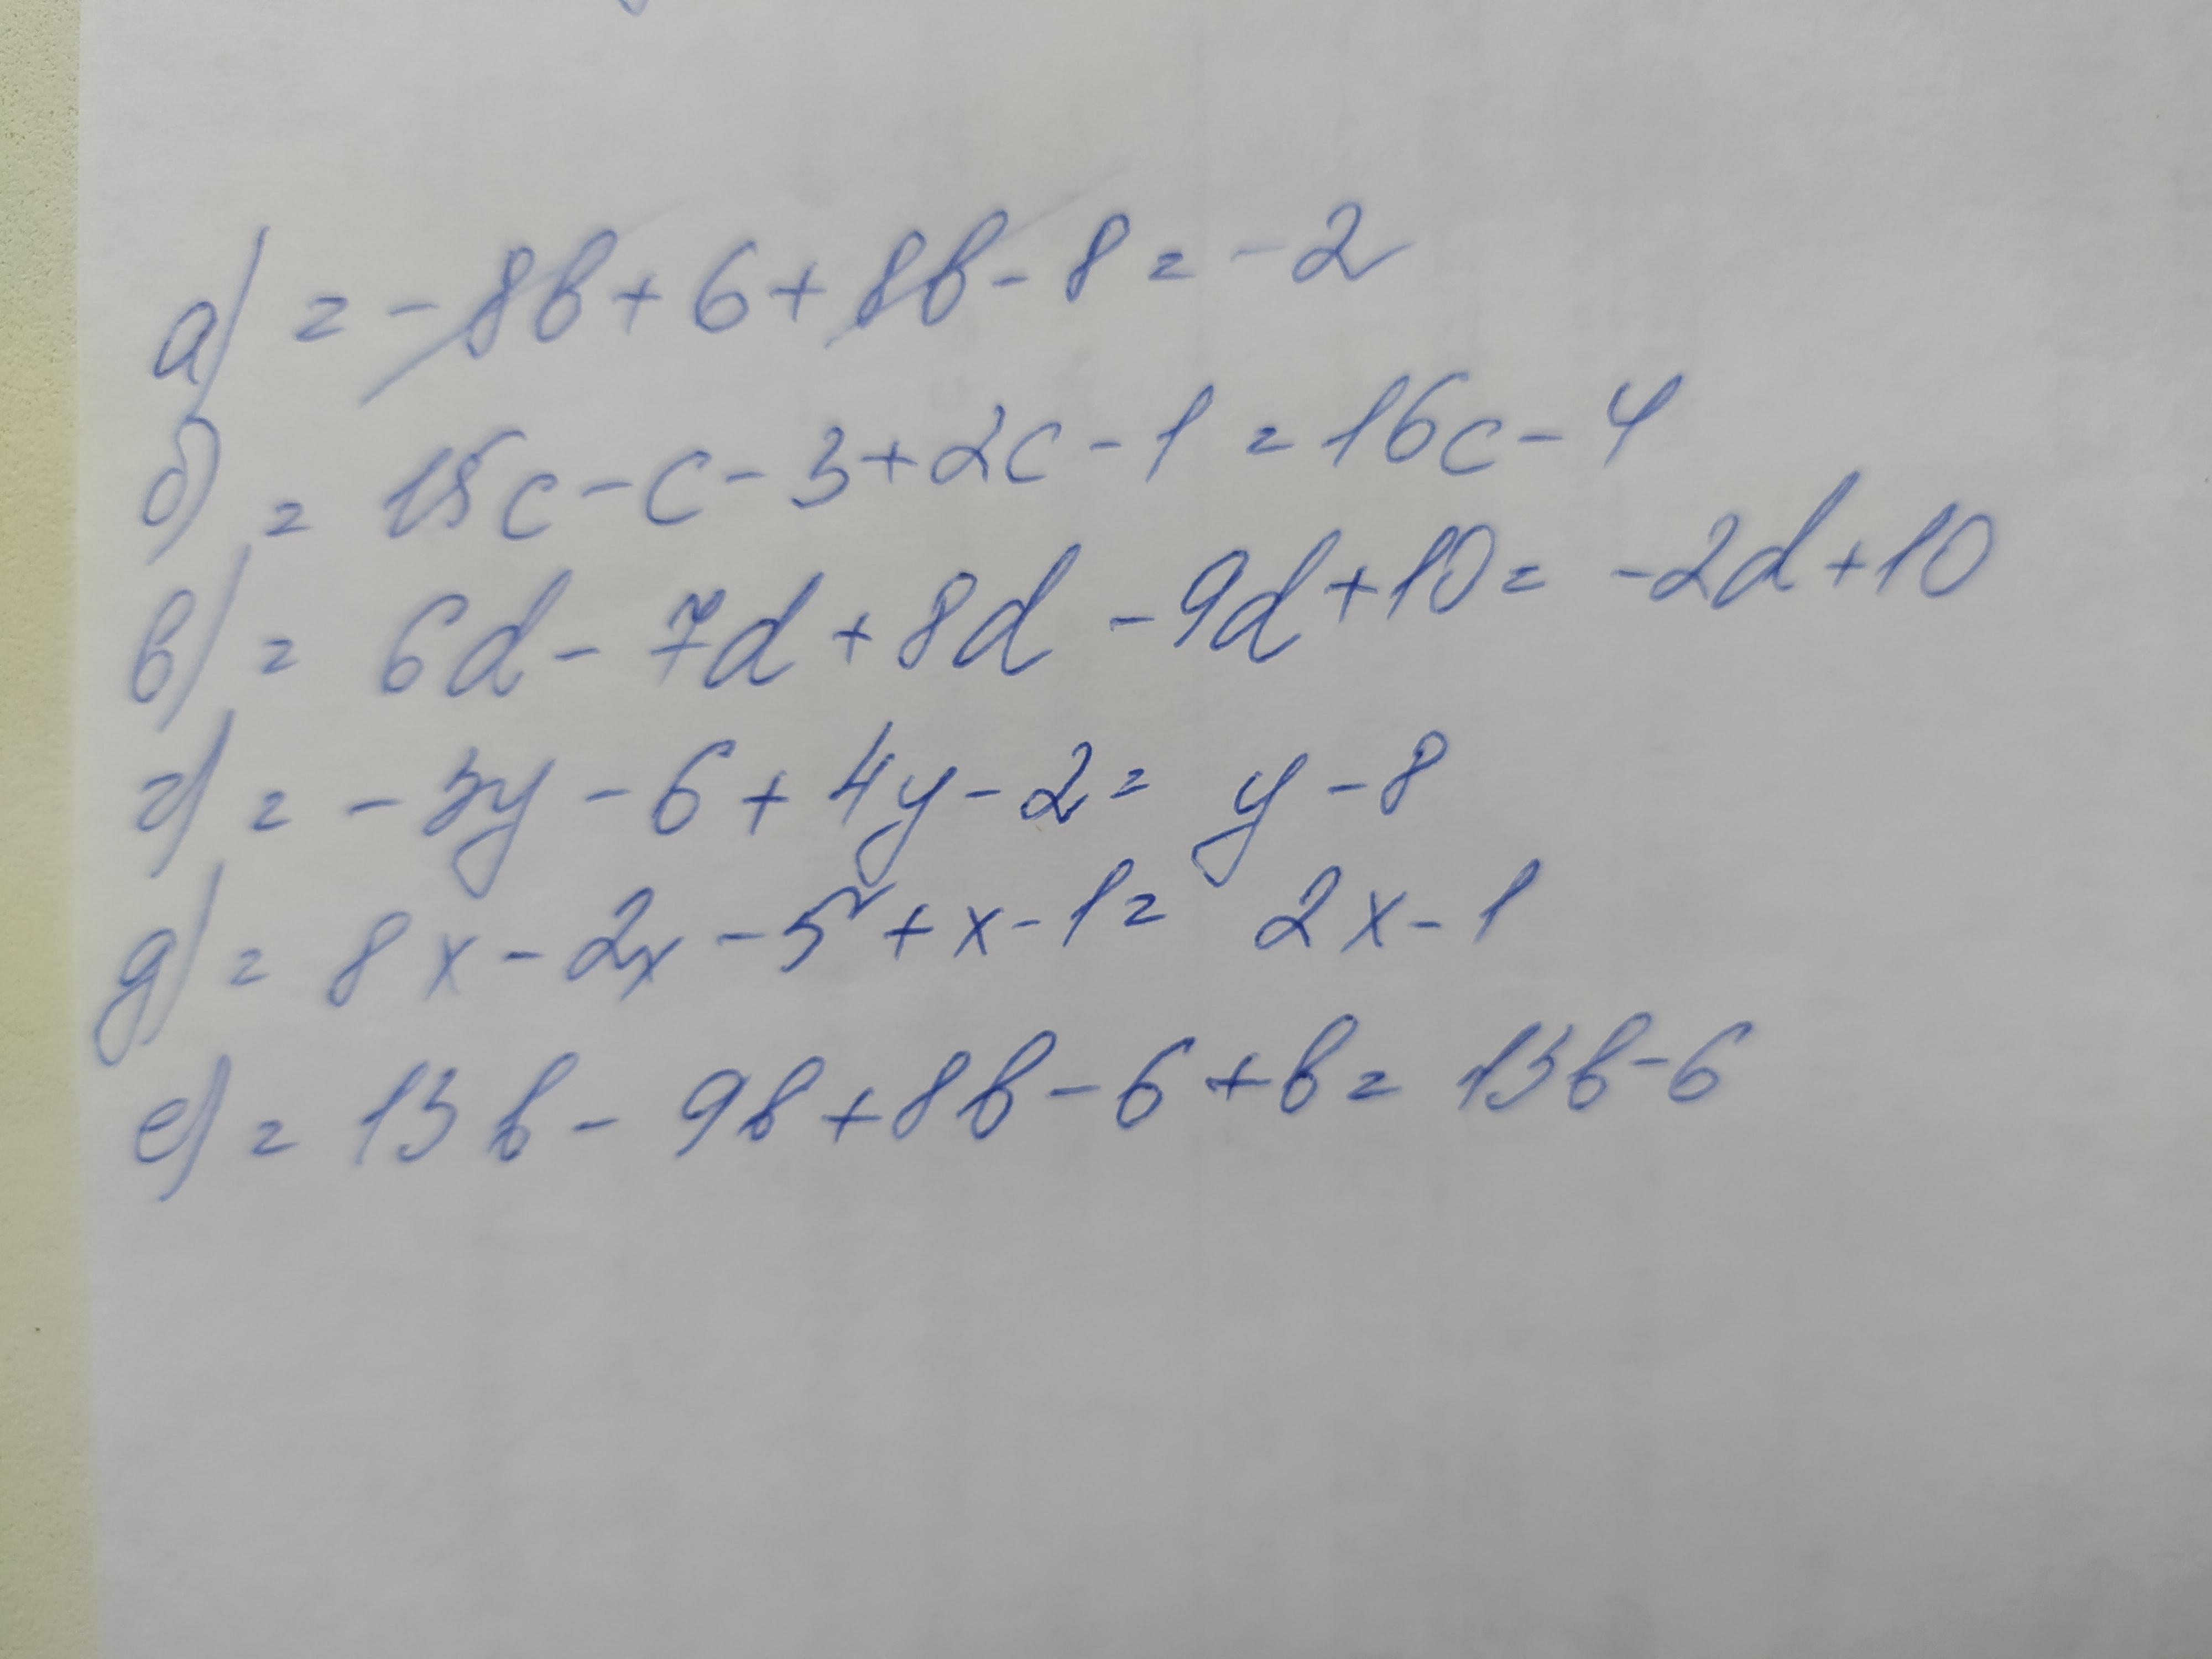 а) = - 8в + 6 + 8в - 8 = - 2
б) = 15c - c - 3 + 2c - 1 = 16c - 4
в) = 6d - 7d + 8d - 9d + 10 = - 2d + 10
г) = - 3y - 6 + 4y - 2 = y - 8
д) = 8x - 2x - 5 + x - 1 = 2x - 1
е) = 13в - 9в + 8в - 6 + в = 13в - 6